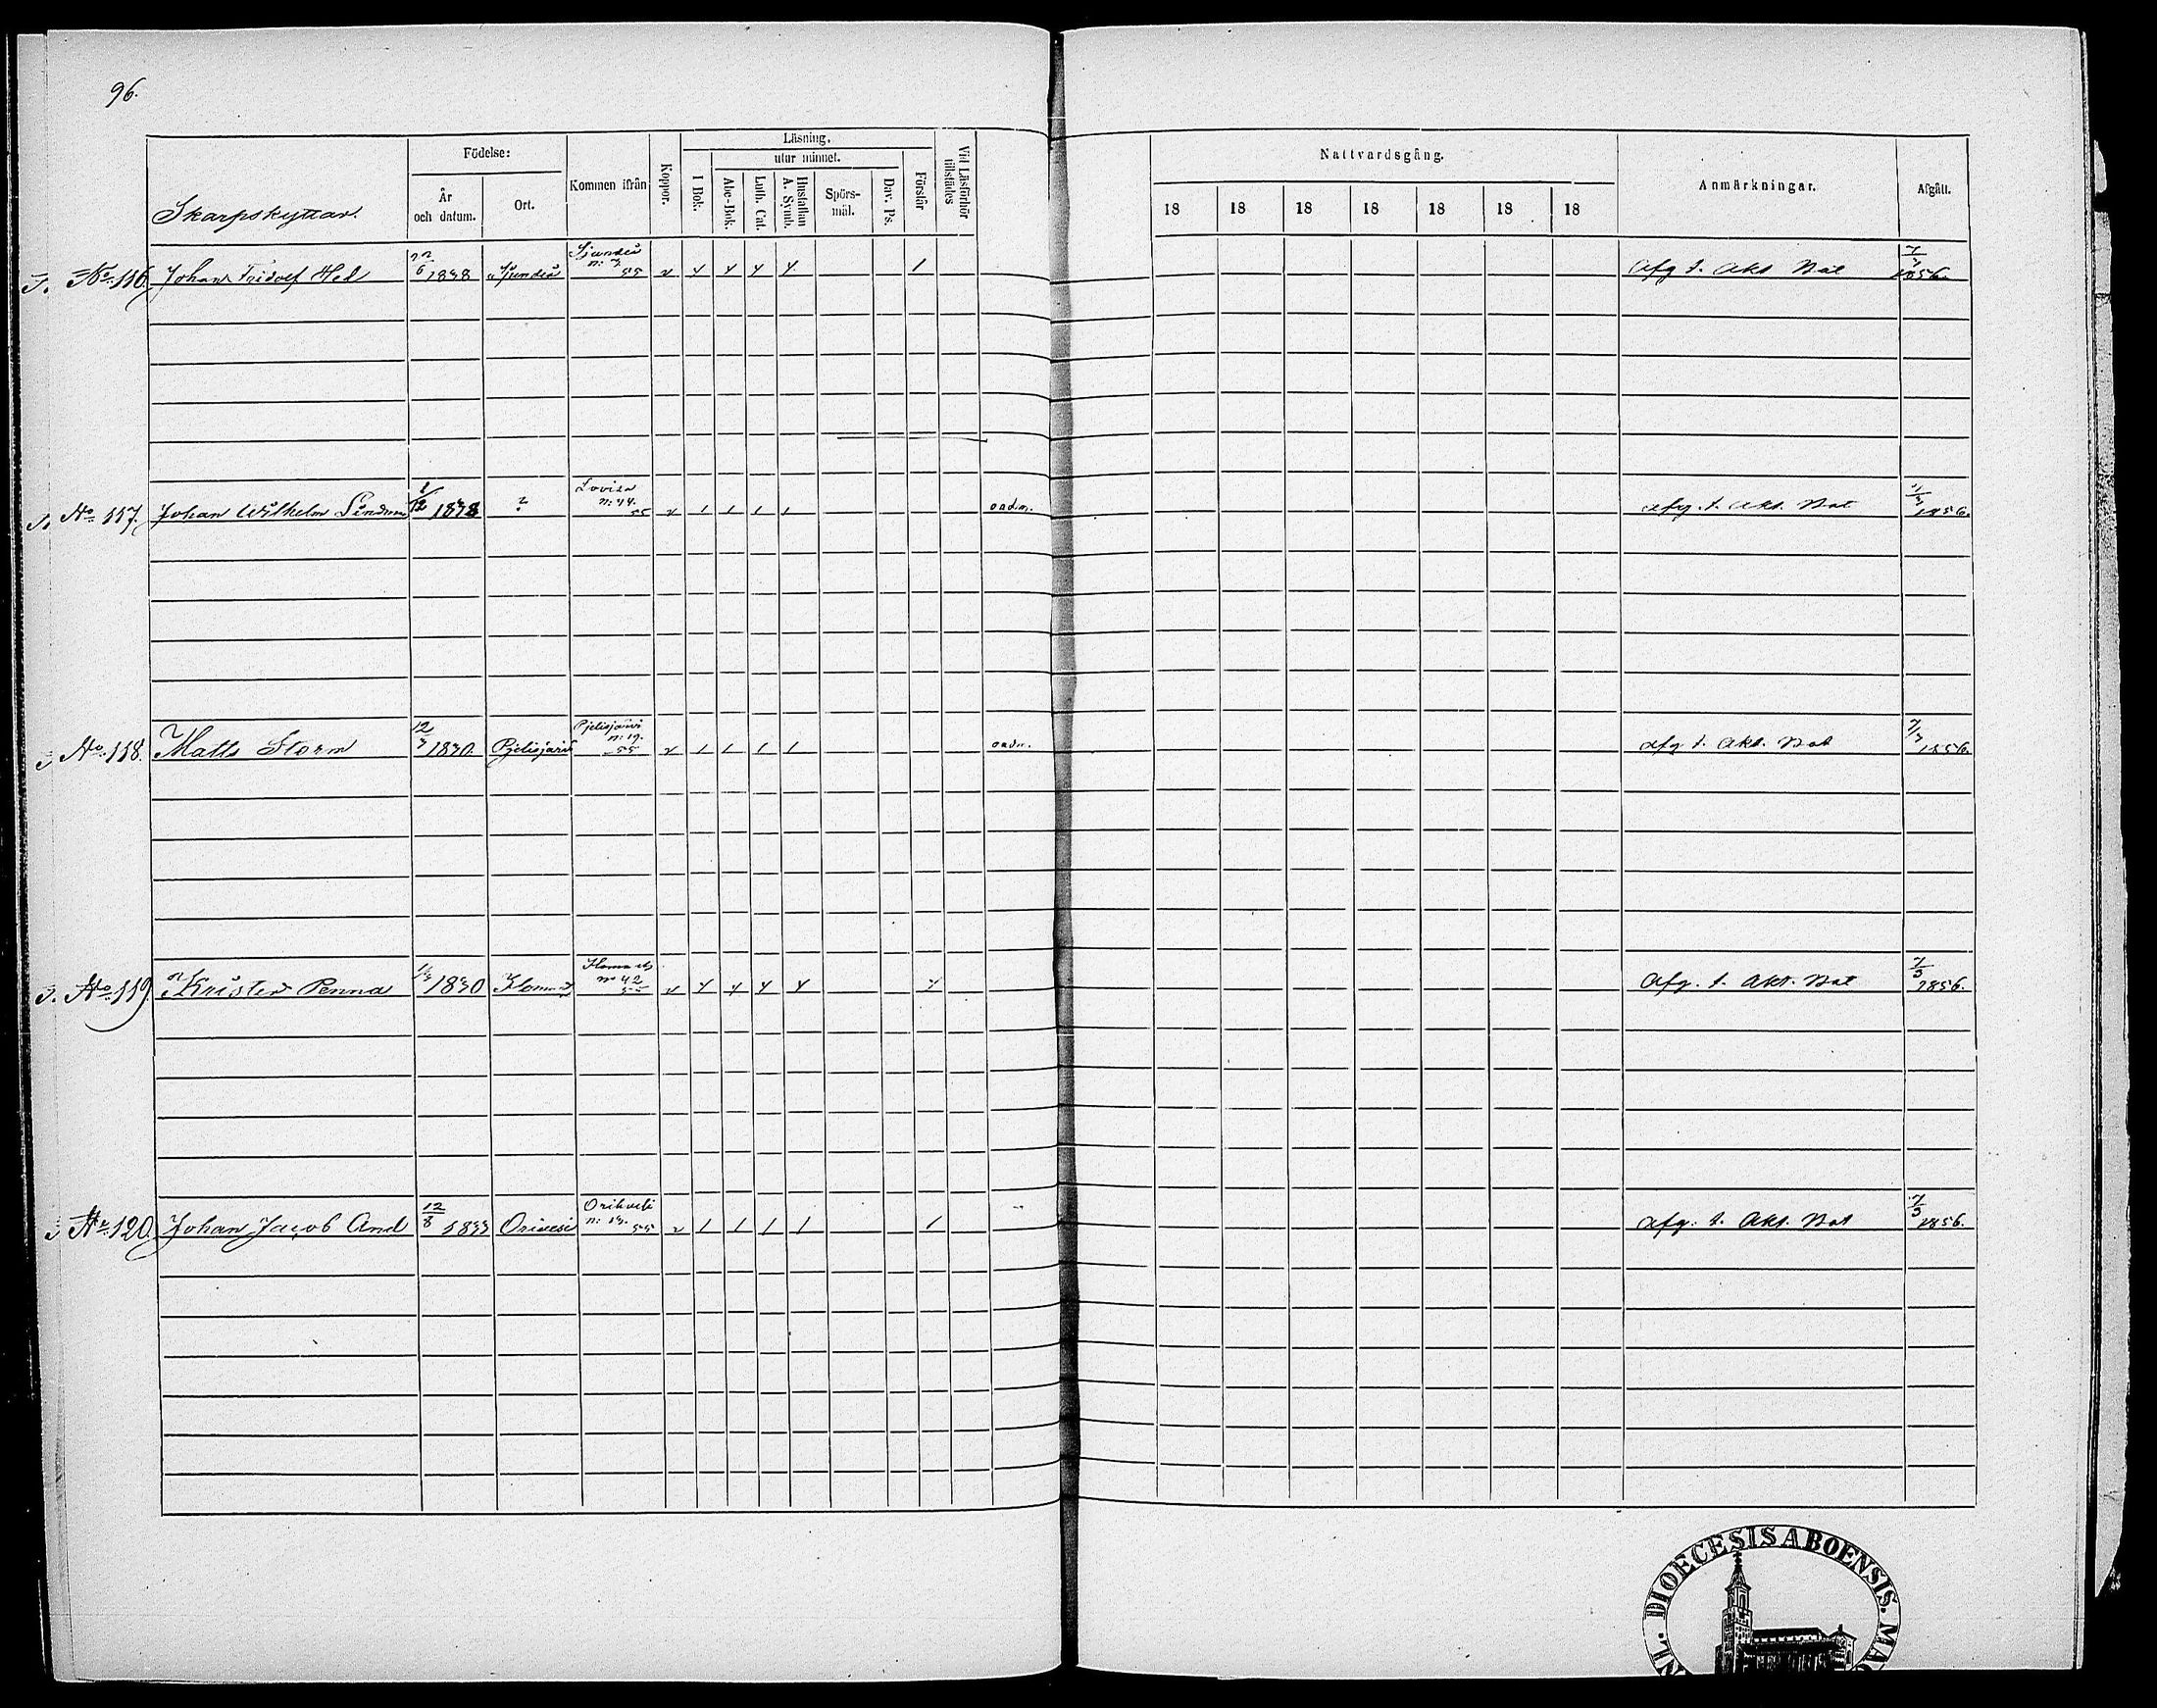 96.
Skarpskyttar.
Födelse:
År och datum.
Ort.
Kommen ifrån
Koppor.
Läsning.
I Bok.
utur minnet.
Abc-Bok.
Luth. Cat.
Hustaflan A. Symb.
Spörs-mål.
Dav. Ps.
Förstår
Vid Läsförhör tillstädes
Nattvardsgång.
18 18 18 18 18 18 18
Anmärkningar.
Afgått.
No 116. Johan Fridolf Hed 22/6 1838 Sjundeå Sjundeå n: 7. 55 afg t. Akt. Bat 7/3 1856.
No 117. Johan Wilhelm 1/12 1838 ? Lovisa n: 44. 55 oadm. afg. t. Akt. Bat 7/3 1856.
No 118. Matts Storm 12/3 1830 Pjelisjärvi Pjelisjärvi n: 19. 55 oadm. afg t. Akt. Bat 7/3 1856.
No 119. Krister Penna 1830 Ilomants Ilomants no 42 55 Afg. t. Akt. Bat 7/3 1856.
No 120. Johan Jacob And 12/8 1833 Orivesi Orihvesi n: 13. 55 afg. t. Akt. Bat 7/3 1856.
DIOECESIS ABOENSIS.